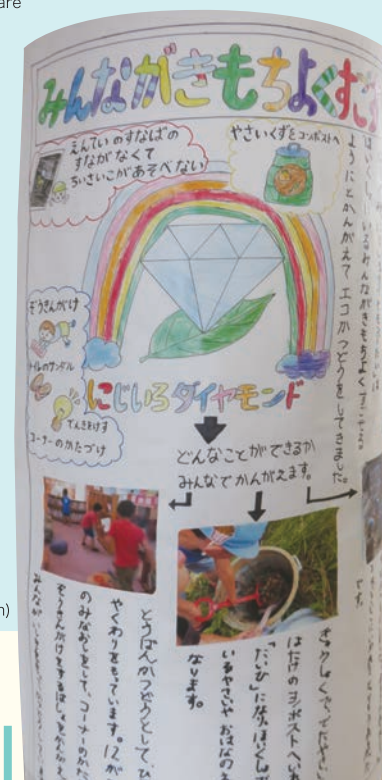 are
みんながきもちよくすご
えんていのすなばの
すながなくて
ちいさいこがあそべない
やさいくずをコンポストへ
ようにとかんがえてエコかつどうをしてきました。
ぞうきんがけ
トイレのサンダル
でんきをけす
コーナーのかたづけ
にじいろダイヤモンド
どんなことができるか
みんなでかんがえます。
です。
とうばんかつどうとして、ひ
やくわりをもっています。12が
のみなおしをして、コーナーのかた
ぞうきんがけをするばしょをかんがえ
きゅうしょくででたやさい
はたけのコンポストへい
「たいひ」になり
いるやさいやおはなの
なります。
n)